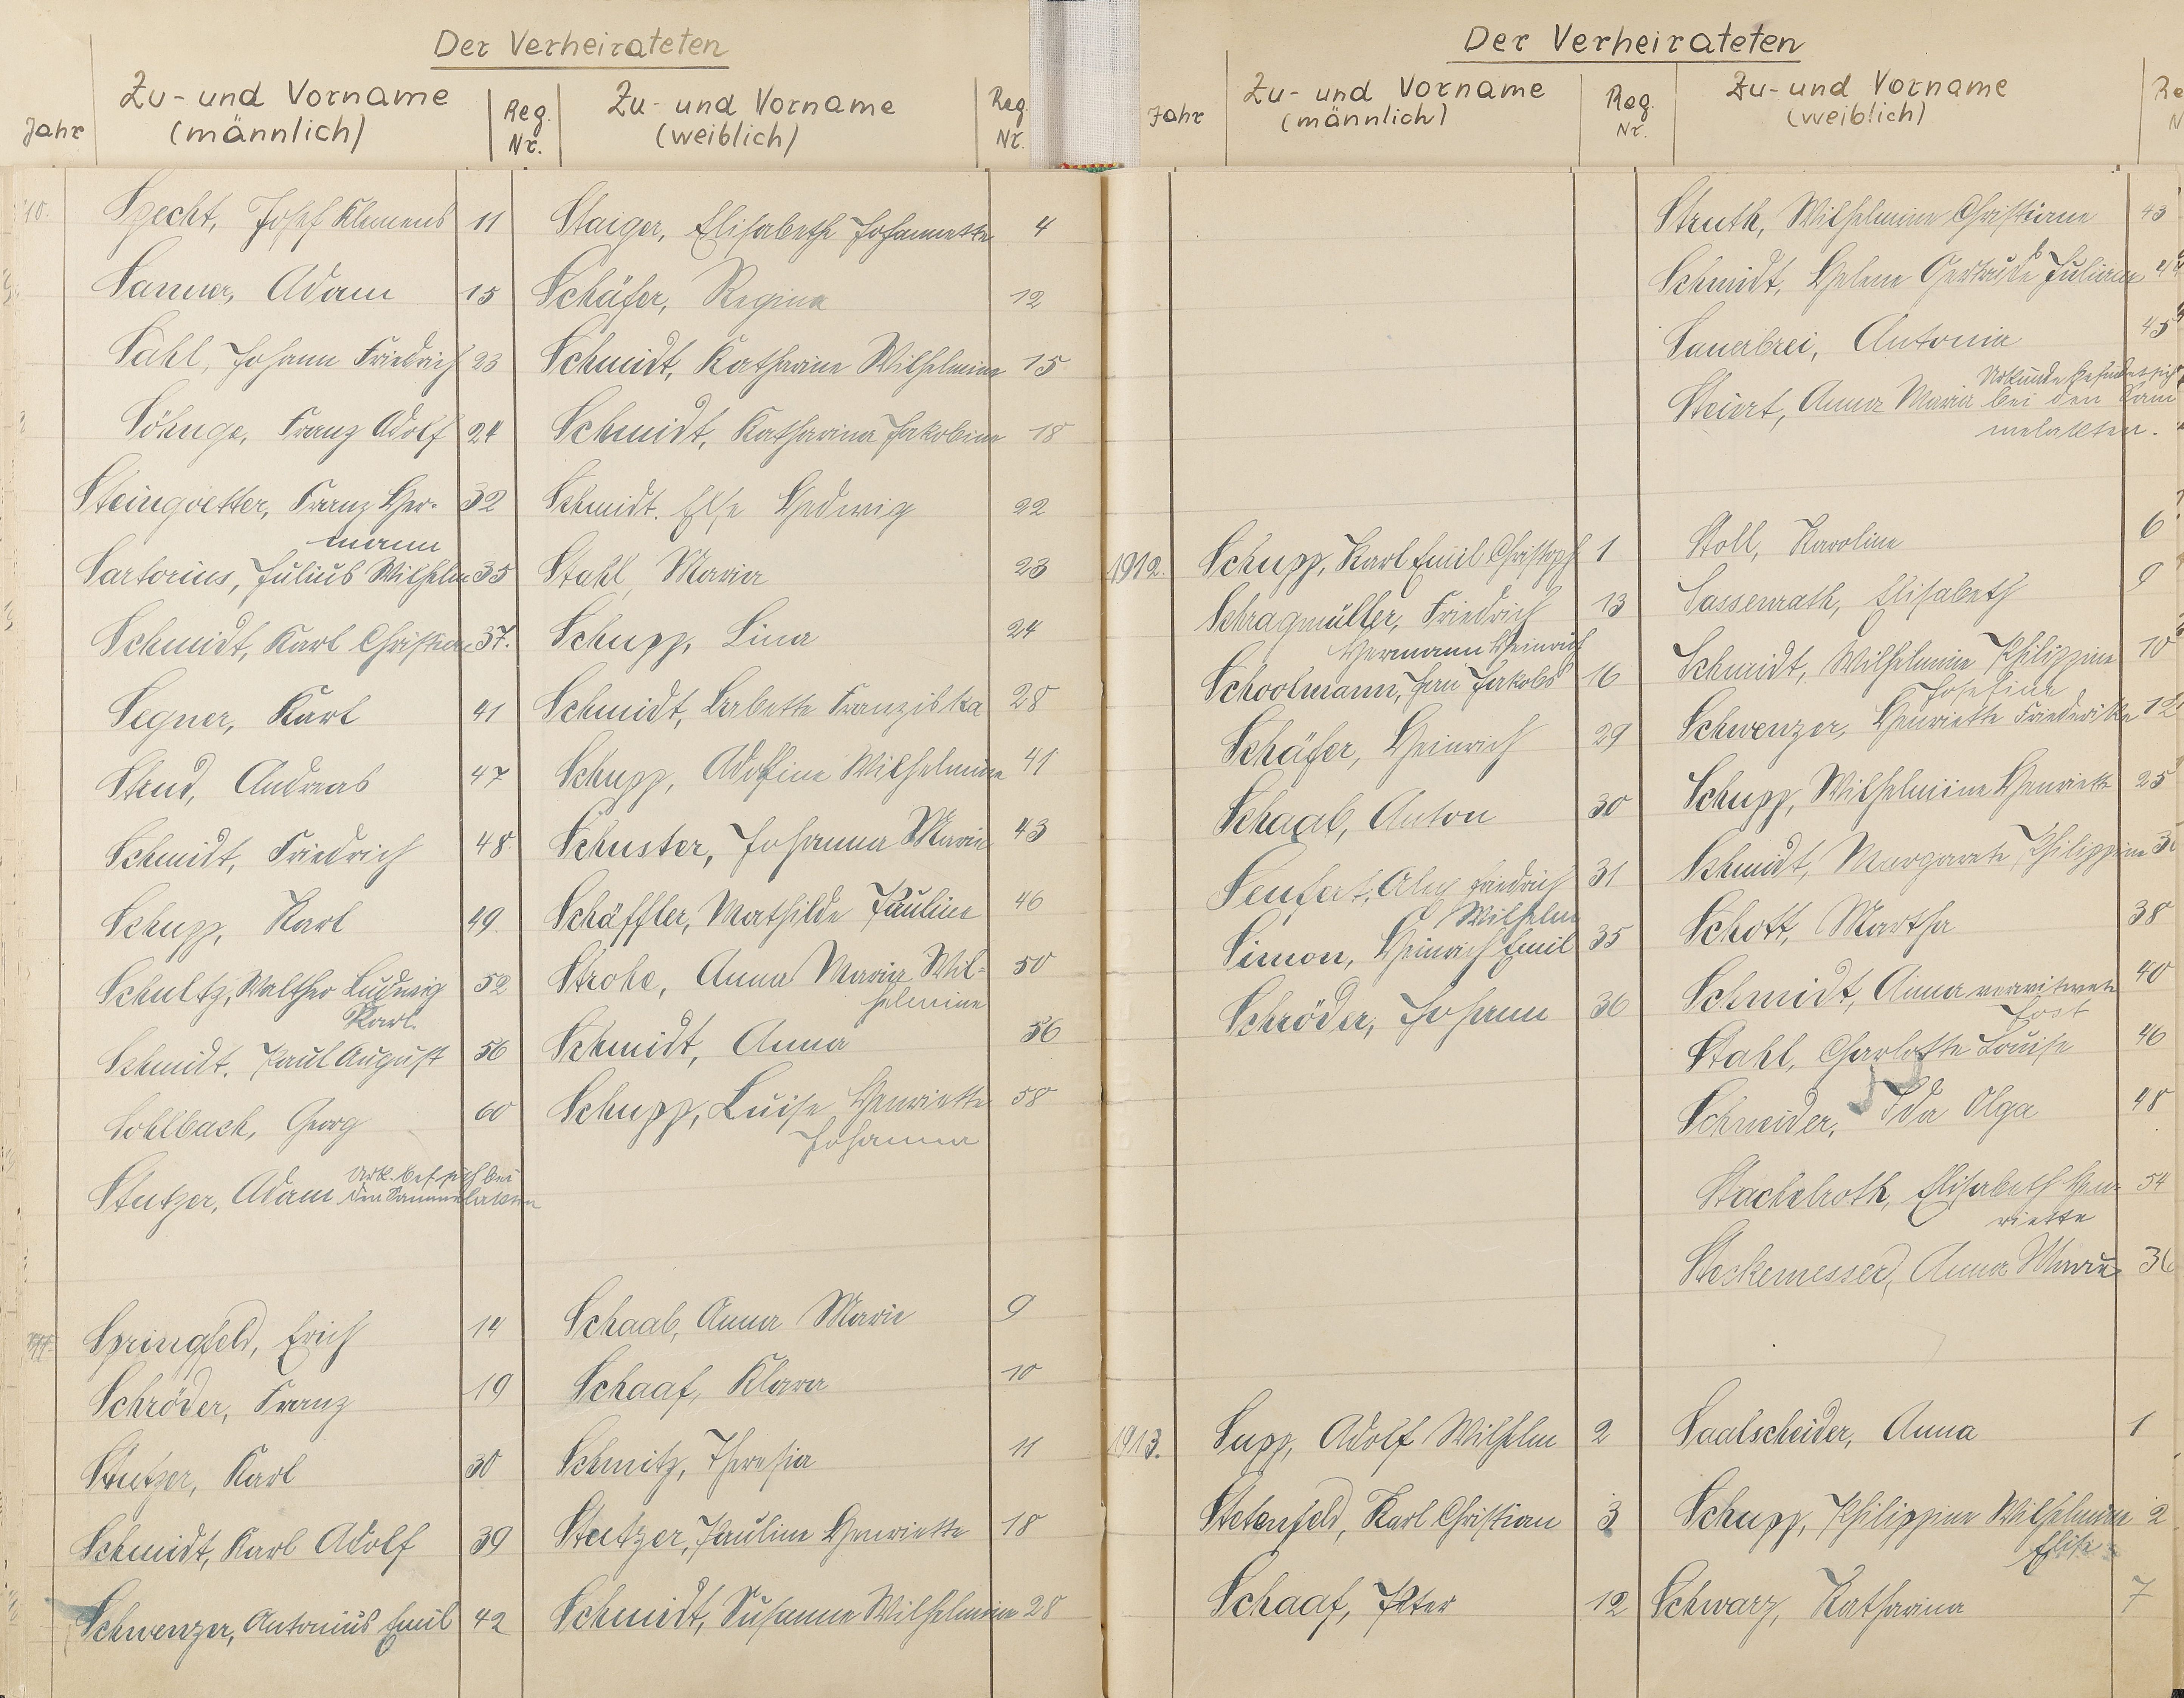 Der Verheirateten
Jahr
Zu- und Vorname
(männlich)
Reg.
Nr.
Zu- und Vorname
(weiblich)
Reg.
Nr.
10.
Specht, Josef Klemens 11
Staiger, Elisabeth Johannette 4
Sanner, Adam 15
Schäfer, Regina 12
Sahl, Johann Friedrich 23
Schmidt, Katharine Wilhelmine 15
Söhnge, Franz Adolf 24
Schmidt, Katharina Jakobine 18
Steingoetter, Franz Her- 32
mann
Schmidt. Else Hedwig 22
Sartorius, Julius Wilhelm 35
Stahl, Maria 23
Schmidt, Karl Christian 37.
Schupp, Lina 24
Segner, Karl 41
Schmidt, Babette Franziska 28
Andreas 47
Schupp, Adolfine Wilhelmine 41
Schmidt, Friedrich 48
Schuster, Johanna Marie 43
Schupp, Karl 49
Schäffler, Mathilde Pauline 46
Schultz, Walther Ludwig 52
Karl.
Strohe, Anna Maria Wil- 50
helmine
Schmidt. Paul August 56
Schmidt, Anna 56
Sohlbach, Georg 60
Schupp, Luise Henriette 58
Johanna
Stutzer, Adam Urk. bef. sich bei
den Sammelakten
Springfeld, Erich 14
Schaab, Anna Marie 9
Schröder, Franz 19
Schaaf, Klara 10
Stutzer, Karl 30
Schmitz, Theresia 11
Schmidt, Karl Adolf 39
Stutzer, Pauline Henriette 18
Schwenzer, Antonius Emil 42
Schmidt, Susanne Wilhelmine 28
Der Verheirateten
Jahr
Zu- und Vorname
(männlich)
Reg.
Nr.
Zu- und Vorname
(weiblich)
Struth, Wilhelmine Christiane 43
Schmidt, Helene Gertrude Juliane
Sauerbrei, Antonia 45
Urkunde befindet sich
Steiert, Anna Maria bei den Sam
melakten.
1912. Schupp, Karl Emil Christoph 1
Stoll, Karoline 6
Schragmüller, Friedrich 13
Hermann Heinrich
Sassenrath, Elisabeth 9
Schoolmann, Jan Jakobs 16
Schmidt, Wilhelmine Philippine 10
Josefine
Schäfer, Heinrich 29
Schwenzer, Henriette Friederike 12
Schaab, Anton 30
Schupp, Wilhelmine Henriette 25
Seufert, Alex Friedrich 31
Wilhelm
Schmidt, Margarete Philippine
Simon, Heinrich Emil 35
Schott, Martha 38
Schröder, Johann 36
Schmidt, Anna verwitwete 40
Jost
Stahl, Charlotte Louise 46
Schneider, Ida Olga 48
Stachelroth, Elisabeth Hen- 54
riette
Steckemesser, Anna Marie 36
1913. Supp, Adolf Wilhelm 2
Saalscheider, Anna 1
Stetenfeld, Karl Christian 3
Schupp, Philippine Wilhelmine 2
Elise
Schaaf, Peter 12
Schwarz, Katharina 7